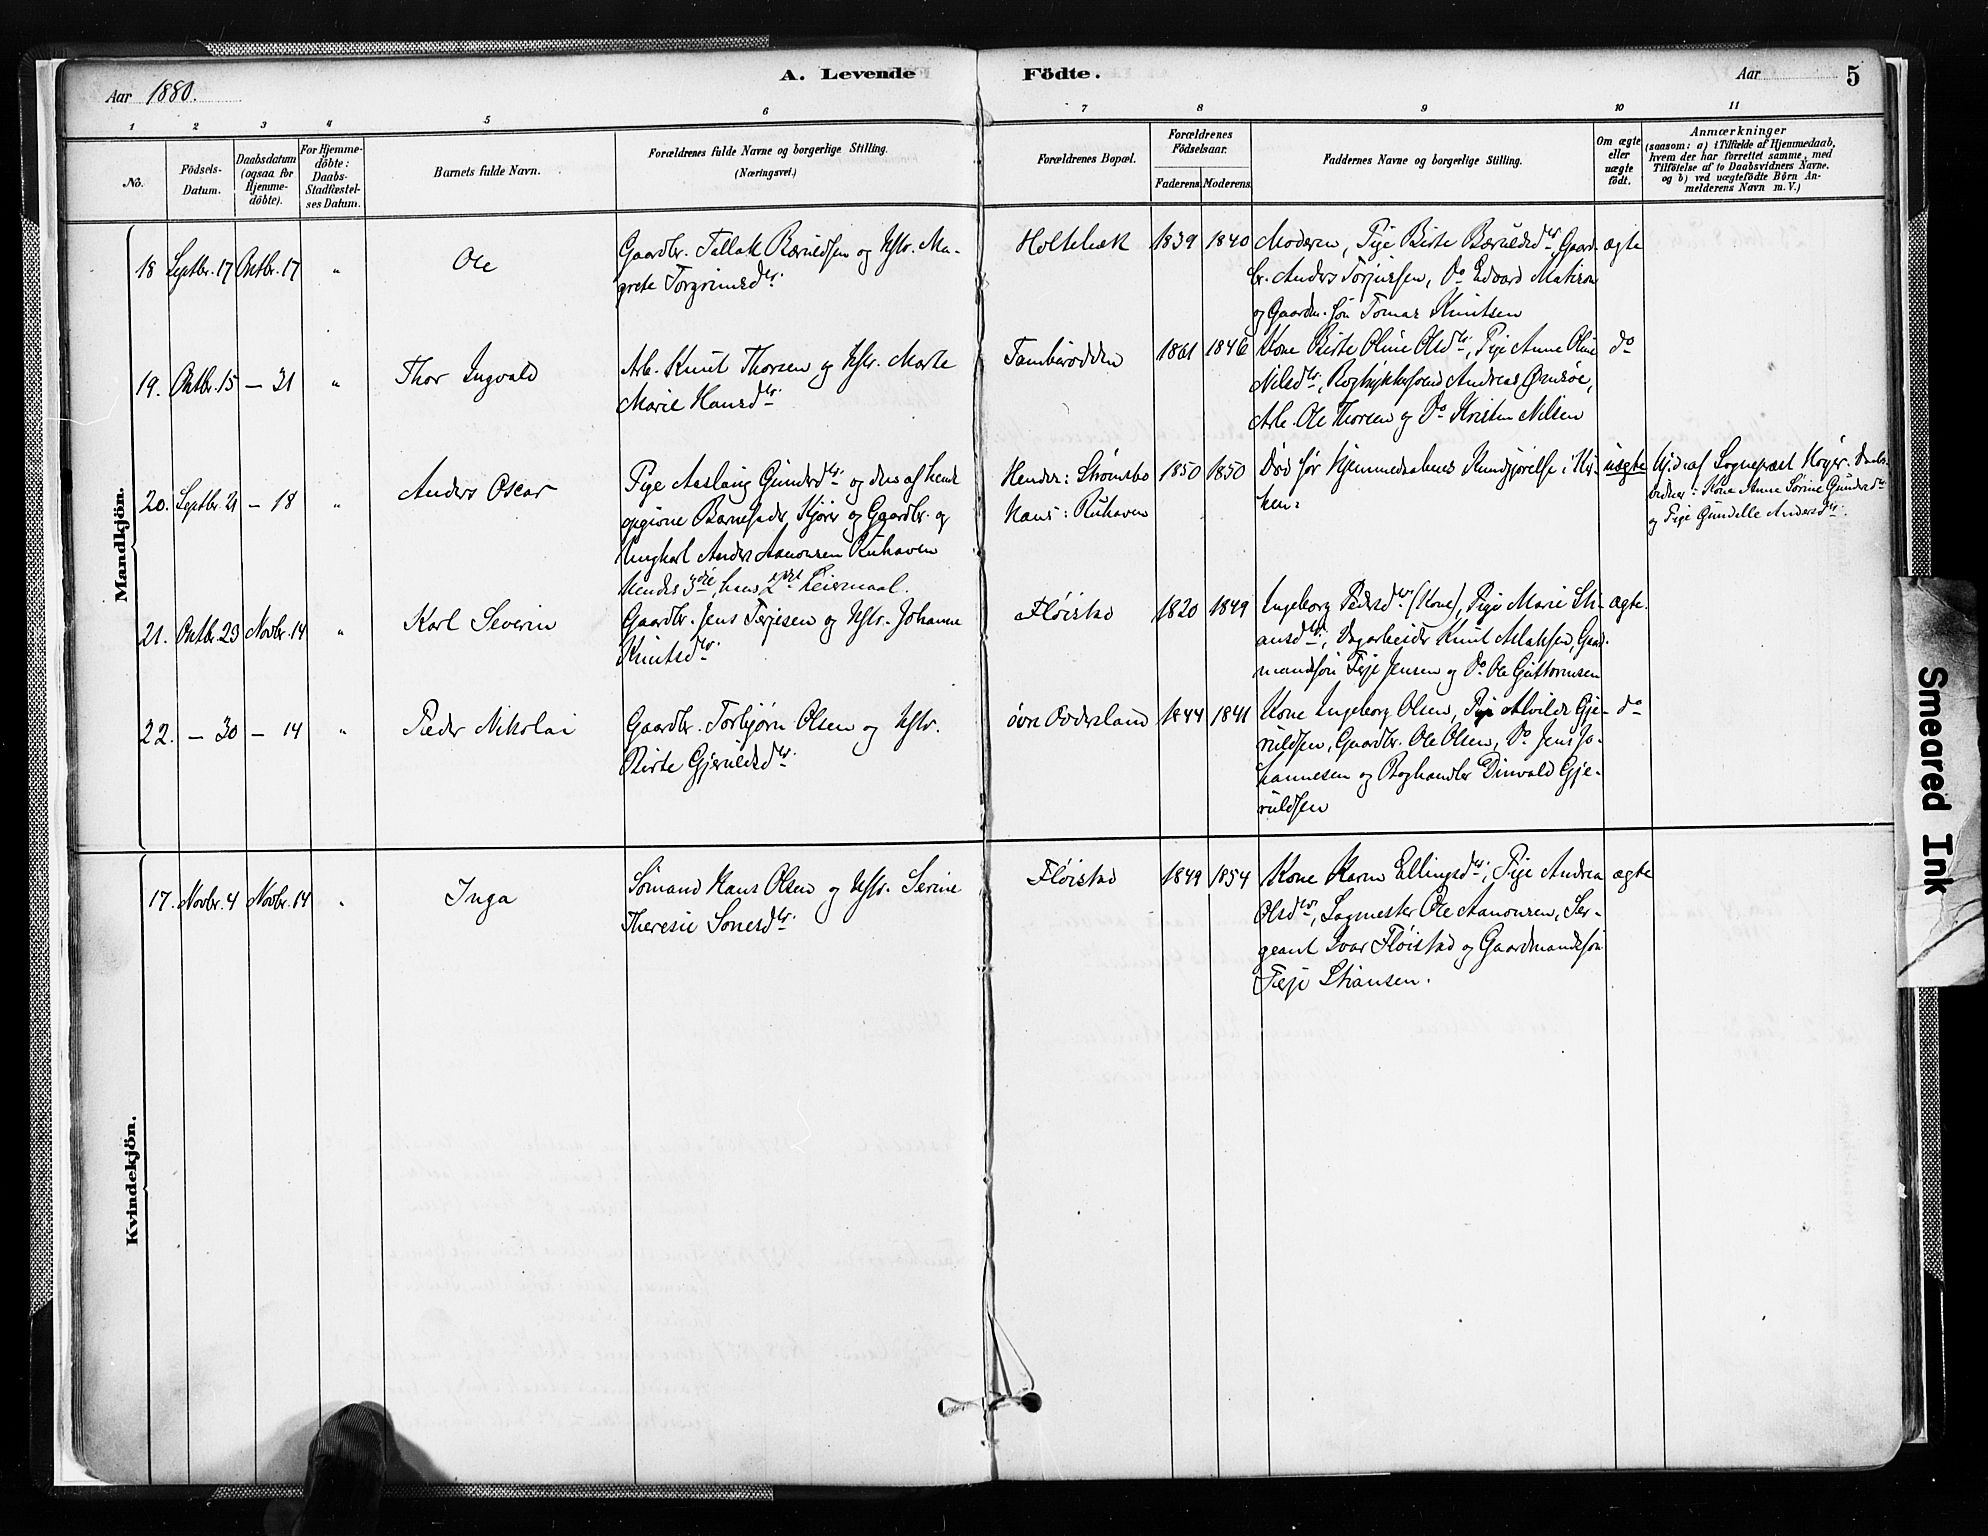 Aar 1880.
A. Levende
Födte.
Aar
5
1 2 3 4 5 6 7 8 9 10 11
No.
Födsels-
Datum.
Daabsdatum
(ogsaa for
Hjemme-
döbte).
For Hjemme-
döbte:
Daabs-
Stadfæstel-
ses Datum.
Barnets fulde Navn.
Forældrenes fulde Navne og borgerlige Stilling.
(Næringsvei.)
Forældrenes Bopæl.
Forældrenes
Födselsaar.
Faderens. Moderens.
Faddernes Navne og borgerlige Stilling.
Om ægte
eller
uægte
födt.
Anmærkninger
(saasom: a) i Tilfælde af Hjemmedaab,
hvem der har forrettet samme, med
Tilföielse af to Daabsvidners Navne.
og b) ved uægtefödte Börn An-
melderens Navn m. V.)
Mandkjön.
18 Septbr. 17 Oktbr. 17 " Ole
Gaardbr. Tellak Bærulfsen og Hstr. Ma-
grete Torgrimsdtr.
Holtebæk 1839 1840
Moderen, Pige Birte Bærulfsdtr, Gaard-
br. Anders Torjussen, Do Edvard
og Gaardm. søn Tomas Knutsen
ægte
19. Oktbr. 15 — 31 " Thor Ingvald
Arb. Knut Thorsen og Hstr. Marte
Marie Hansdtr.
Tambursodden 1861 1846
Kone Birte Oline Olsdtr, Pige Anne Oline
Nilsdtr, Andreas
Arb. Ole Thorsen og Do Kristen Nilsen
do
20. Septbr. 21 — 18 " Anders Oscar
Pige Aaslaug Gundersdtr. og den af hende
opgivne Barnefader, og Gaardbr. og
Ungkarl Anders Aanonsen Ruhaven
Hendes 3die, hans 2det Leiermaal.
Hendes: Strømsbo
Hans: Ruhaven
1850 1850
Død før Hjemmedaabens Kundgjørelse i Kir-
ken.
uægte
Hj. d. af Sogneprest Høyer. Daabs-
vidner: Kone Anne Sørine Gundersdtr
og Pige Gunelle Andersdtr.
21. Oktbr. 23 Novbr. 14 " Karl Severin
Gaardbr. Jens Terjesen og Hstr. Johanne
Knutsdtr.
Fløistad 1820 1849
Ingeborg Pedersdtr (Kone), Pige Marie Sti-
ansdtr, Dagarbeider Knut Aslaksen, Gaard-
mandssøn Terje Jensen og Do Ole Guttormsen
ægte
22. — 30 — 14 " Peder Nikolai
Gaardbr. Torbjørn Olsen og Hstr.
Birte Gjeruldsdtr.
øvre 1844 1841
Kone Ingeborg Olsen, Pige Alvilde Gje-
ruldsen, Gaardbr. Ole Olsen, Do Jens Jo-
hannesen og Boghandler Dinvald Gje-
ruldsen
do
Kvindekjön.
17. Novbr. 4 Novbr. 14 " Inga
Sømand Hans Olsen og Hstr. Serine
Theresie Sonesdtr.
Fløistad 1849 1854
Kone Karen Ellingsdtr, Pige Andrea
Olsdtr, Sagmester Ole Aanonsen, Ser-
geant Ivar Fløistad og Gaardmandssøn
Terje Stiansen.
ægte
Smeared Ink